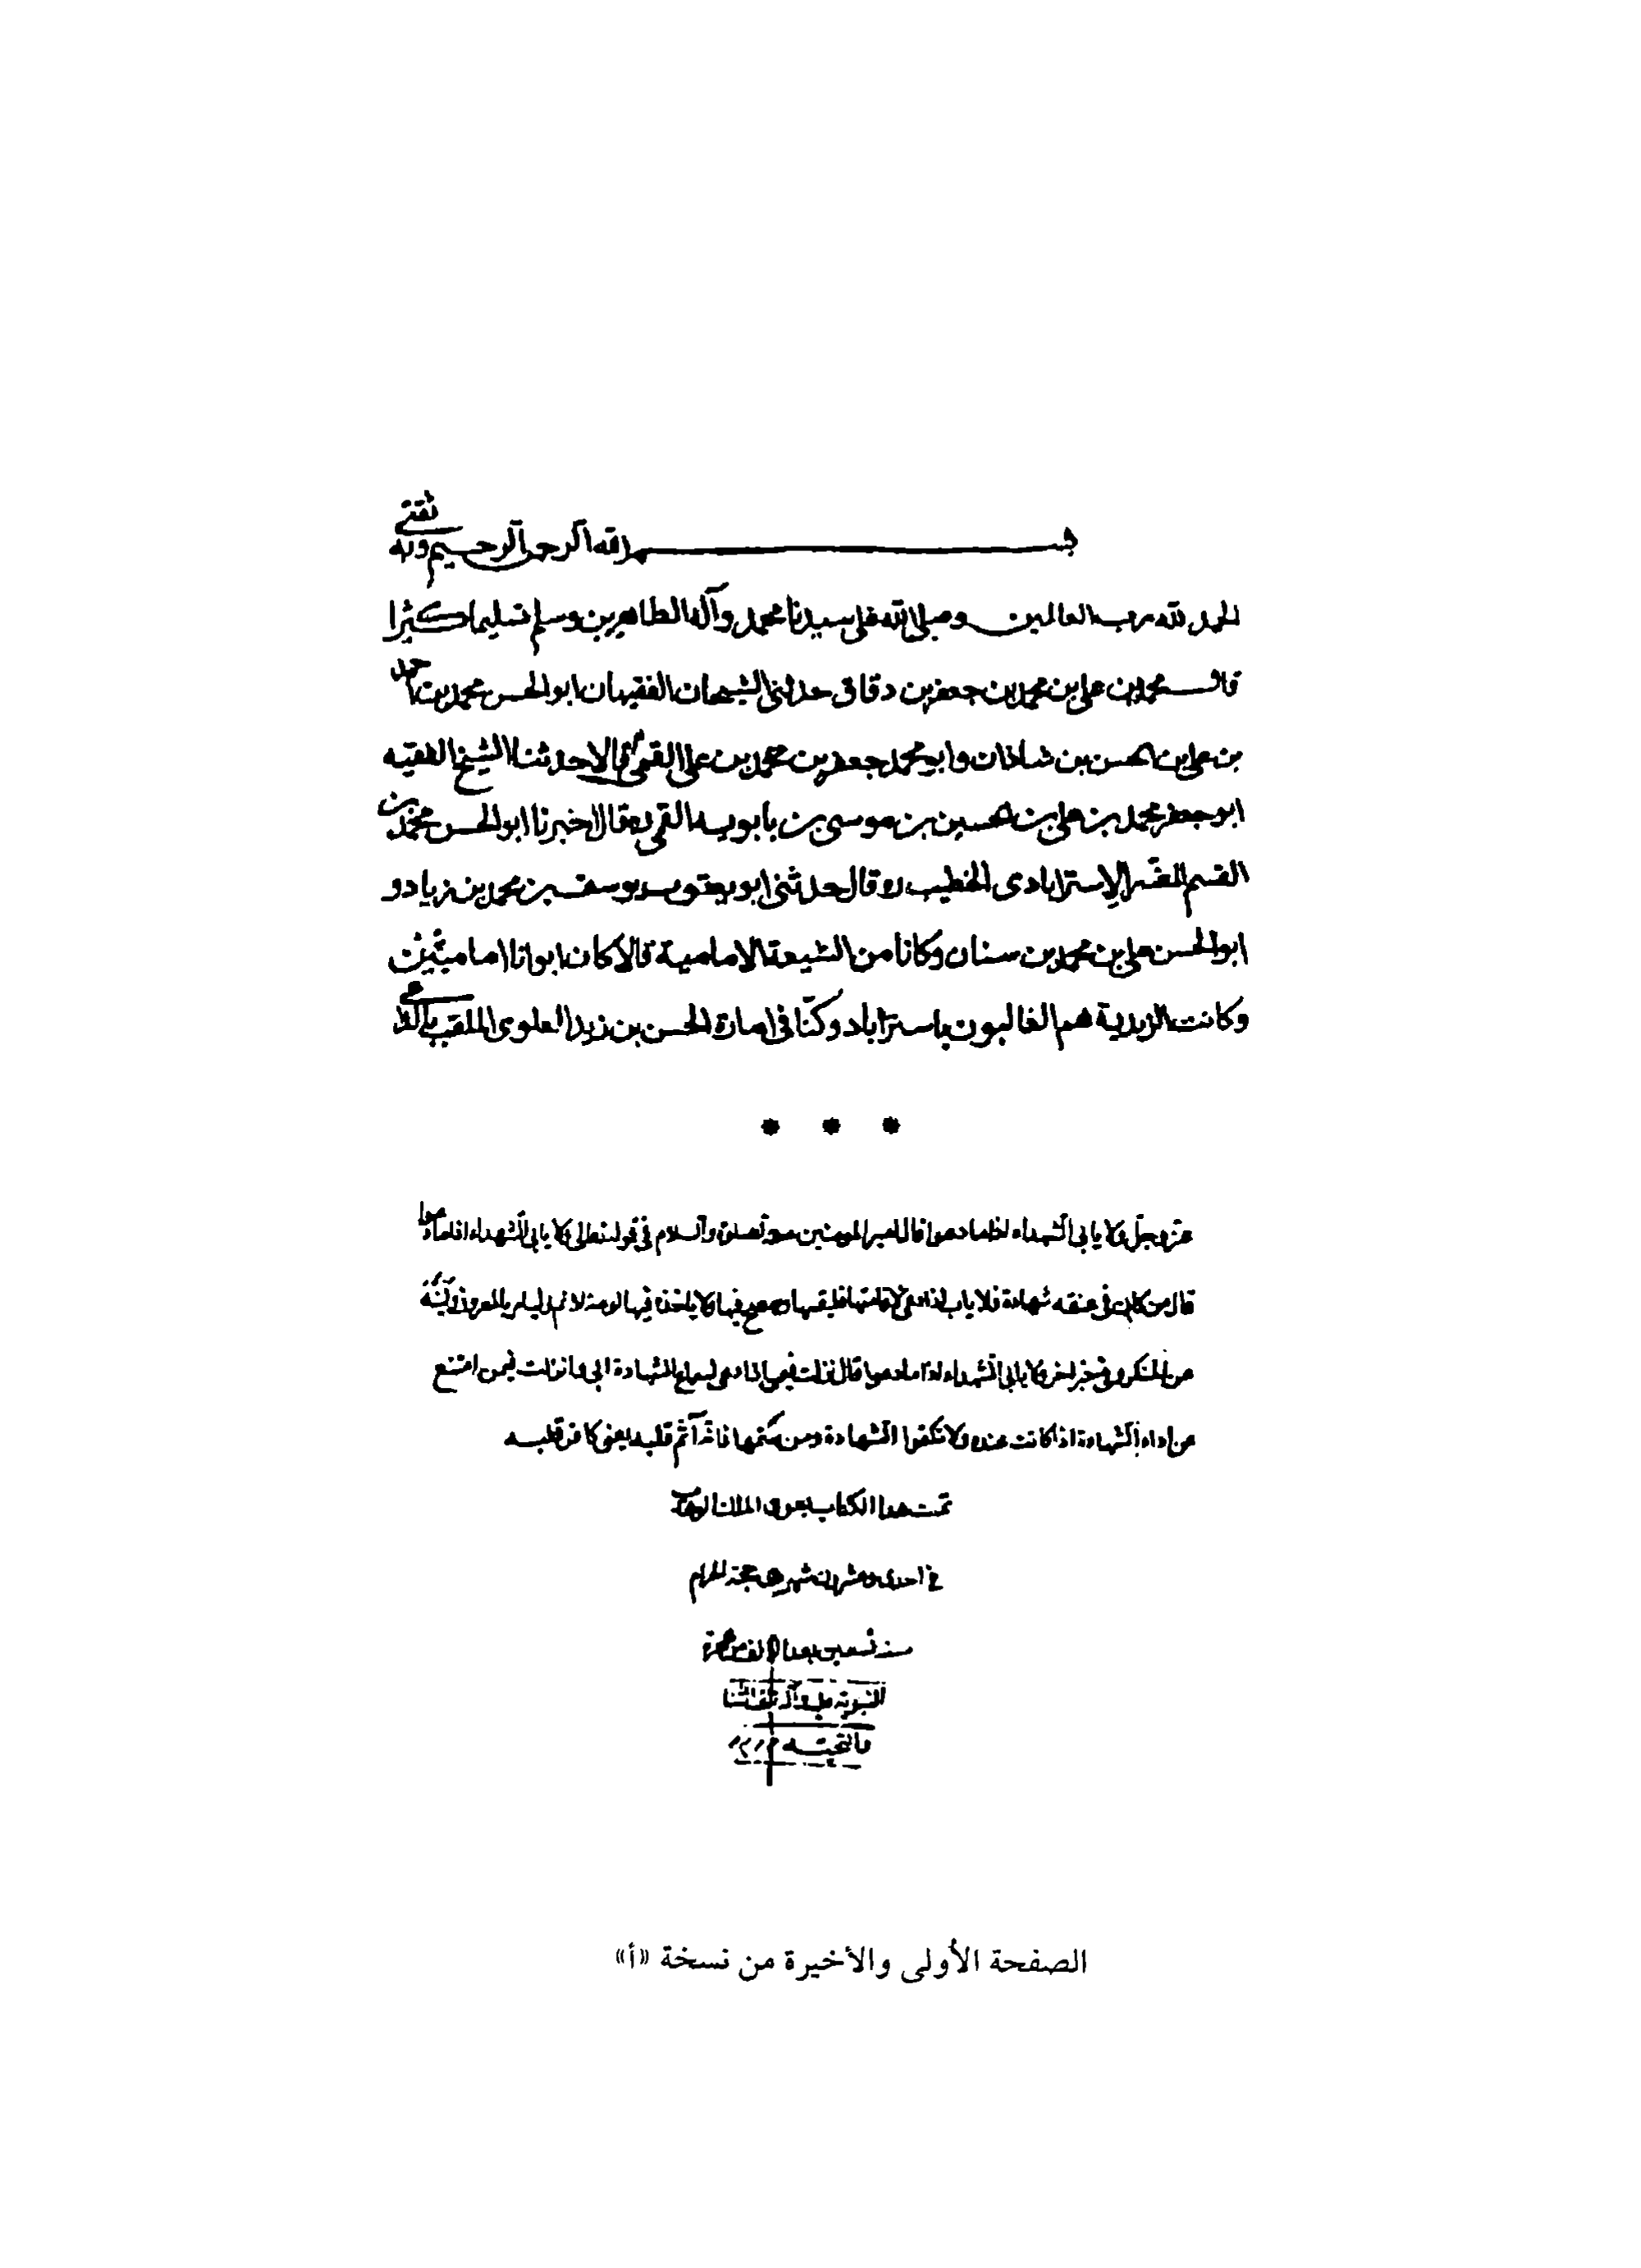 بسم الله الرحمن الرحيم وبه ثقتي
الحمد لله رب العالمين وصلى الله على سيدنا محمد وآله الطاهرين وسلم تسليما كثيرا
قال محمد بن على بن محمد بن جعفر بن دقاق حدثنى الشيخان الفقيهان ابو الحسن محمد بن احمد
بن على بن الحسن بن شاذان وابو محمد جعفر بن محمد بن على القمى قالا حدثنا الشيخ الفقيه
ابو جعفر محمد بن على بن الحسين بن موسى بن بابويه القمى ره قال اخبرنا ابو الحسن محمد بن
القسم المفسر الاسترابادى الخطيب ره قال حدثنى ابو يعقوب يوسف بن محمد بن زياد و
ابو الحسن على بن محمد بن سنان وكانا من الشيعة الامامية قالا كان ابوانا اماميين
وكانت الزيدية هم الغالبون باستراباد وكنا فى امارة الحسن بن زيد العلوى الملقب بالداعى
* * *
عز وجل ولا يابى الشهداء اذا ما دعوا قال امير المؤمنين فى قوله تعالى ولا يابى الشهداء اذا ما دعوا
قال من كان فى عنقه شهادة فلا ياب اذا دعى لاقامتها فليقمها ولينصح فيها ولا ياخذه فيها لومة لائم وليامر بالمعروف ولينه
عن المنكر وفى خبر اخر ولا يابى الشهداء اذا ما دعوا قال نزلت فيمن اذا دعى لسماع الشهادة ابى وانزلت فيمن امتنع
من اداء الشهادة اذا كانت عنده ولا تكتموا الشهادة ومن يكتمها فانه آثم قلبه يعنى كافر قلبه
تمت هذا الكتاب بعون الملك الوهاب
فى احدى وعشرين شهر ذى حجة الحرام
سنة تسعين بعد الالف من هجرة
النبوية عليه وآله
والتحية
الصفحة الأولى والأخيرة من نسخة «أ»